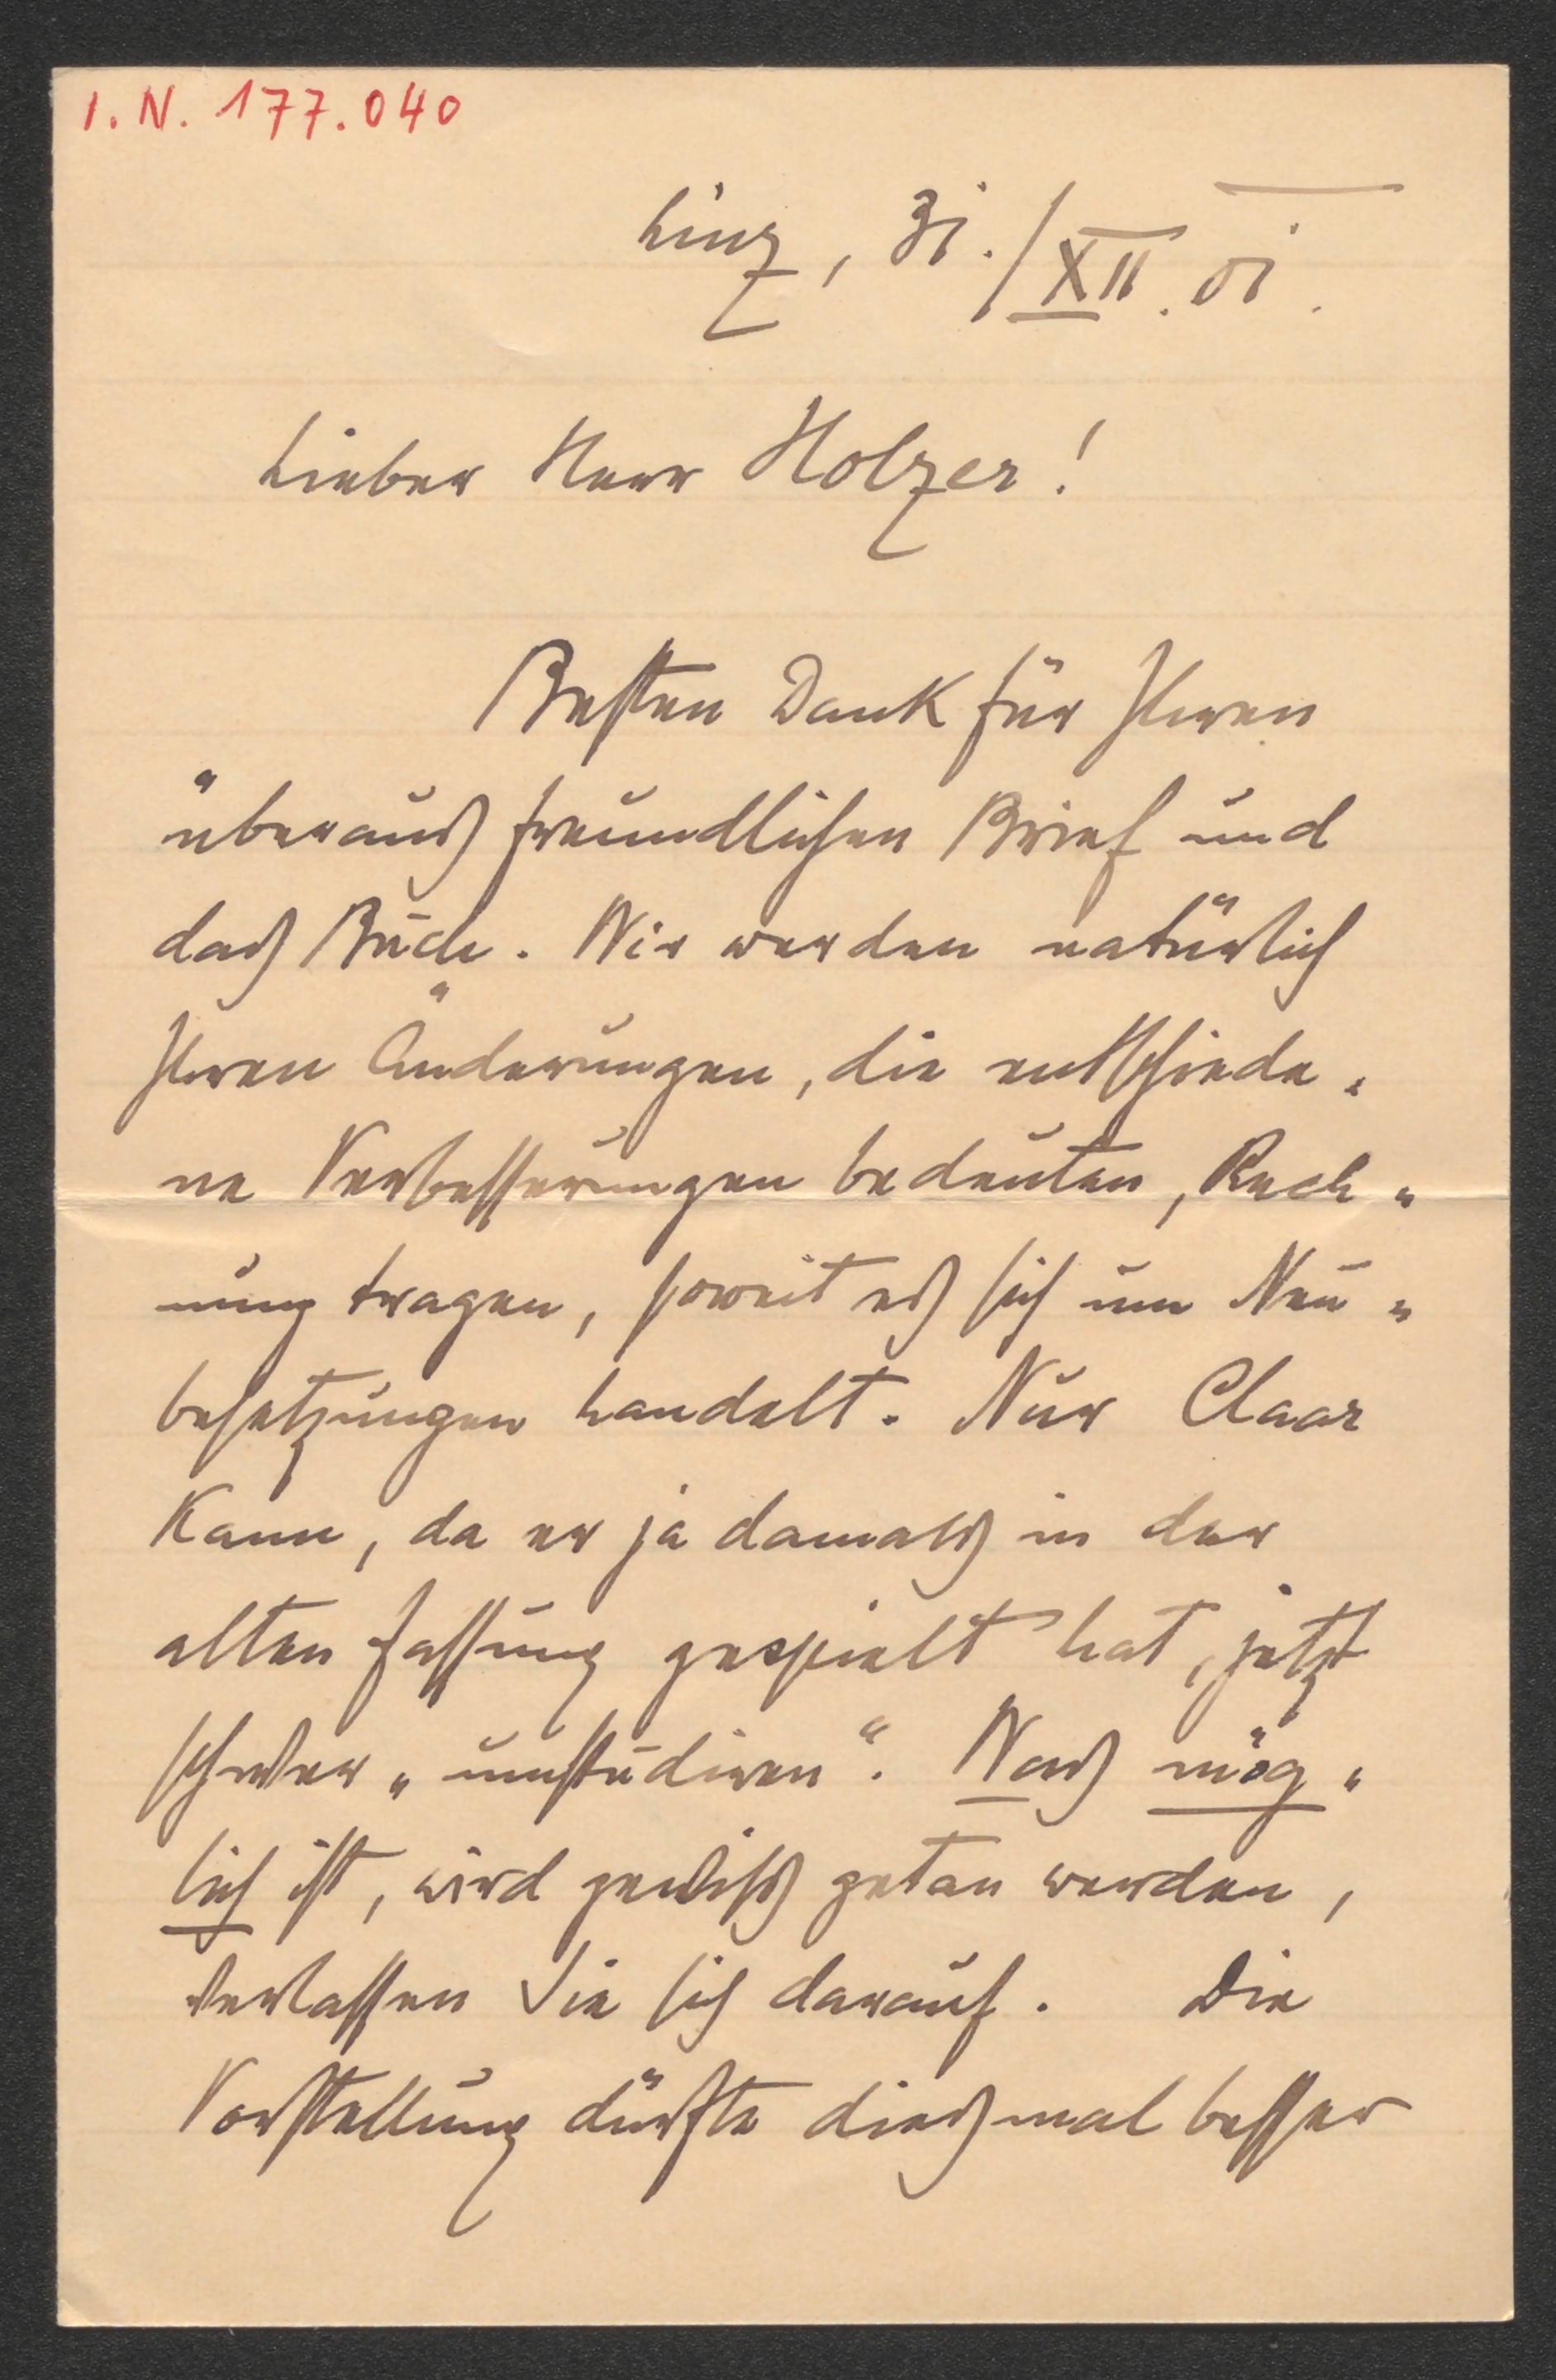 I. N. 177.040
Linz, 31./XII. 01.
Lieber Herr Holzer!
Besten Dank für Ihren
überaus freundlichen Brief und
das Buch. Wir werden natürlich
Ihren Änderungen, die entschiede„
ne Verbesserungen bedeuten, Rech„
nung tragen, soweit es sich um Neu„
besetzungen handelt. Nur Claar
kann, da er ja damals in der
alten Fassung gespielt hat, jetzt
schwer „umstudiren“. Was mög„
lich ist, wird gewiss getan werden,
verlassen Sie sich darauf. Die
Vorstellung dürfte diesmal besser